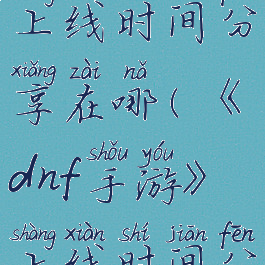 上线时间分
xiǎng zài nǎ
享在哪(《
shǒu yóu
dnf手游》
shàng xiàn shí jiān fēn
上线时间分